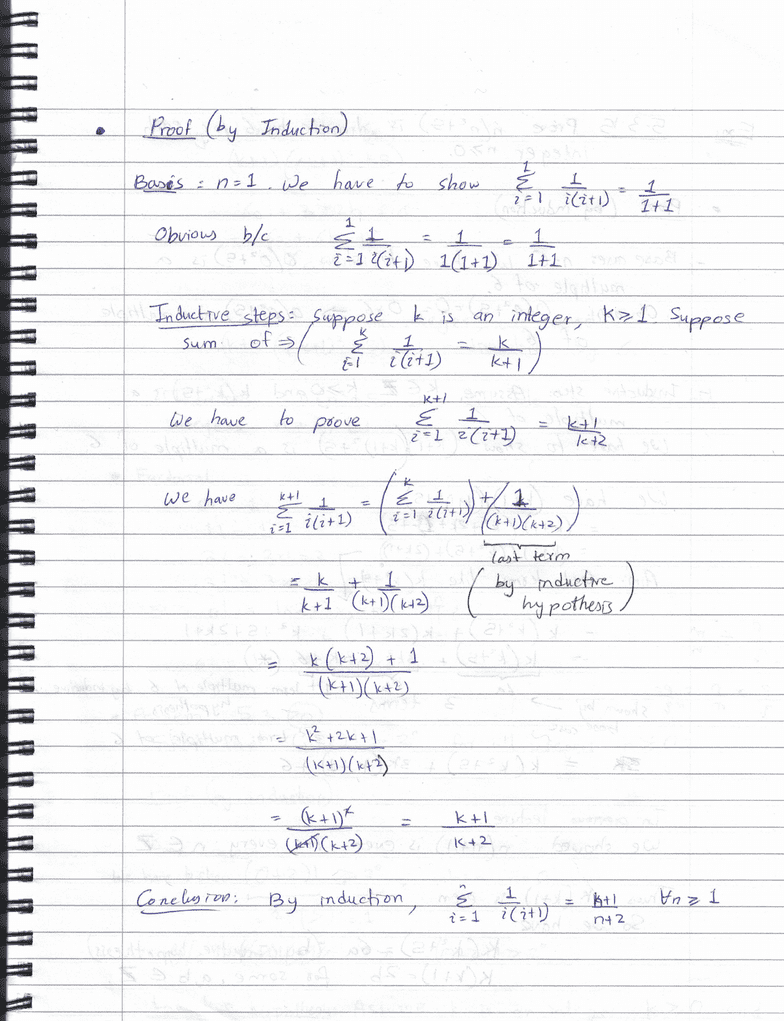 • Proof (by Induction)
Basis: n=1. We have to show \sum_{i=1}^{1} \frac{1}{i(i+1)} = \frac{1}{1+1}
Obvious b/c \sum_{i=1}^{1} \frac{1}{i(i+1)} = \frac{1}{1(1+1)} = \frac{1}{1+1}
Inductive steps: suppose k is an integer, k≥1. Suppose
sum of ⇒ ( \sum_{i=1}^{k} \frac{1}{i(i+1)} = \frac{k}{k+1} )
We have to prove \sum_{i=1}^{k+1} \frac{1}{i(i+1)} = \frac{k+1}{k+2}
We have \sum_{i=1}^{k+1} \frac{1}{i(i+1)} = ( \sum_{i=1}^{k} \frac{1}{i(i+1)} ) + ( \frac{1}{(k+1)(k+2)} )
last term
= \frac{k}{k+1} + \frac{1}{(k+1)(k+2)} (by inductive
hypothesis)
= \frac{k(k+2)+1}{(k+1)(k+2)}
= \frac{k^2+2k+1}{(k+1)(k+2)}
= \frac{(k+1)^2}{(k+1)(k+2)} = \frac{k+1}{k+2}
Conclusion: By induction, \sum_{i=1}^{n} \frac{1}{i(i+1)} = \frac{n+1}{n+2} ∀n≥1